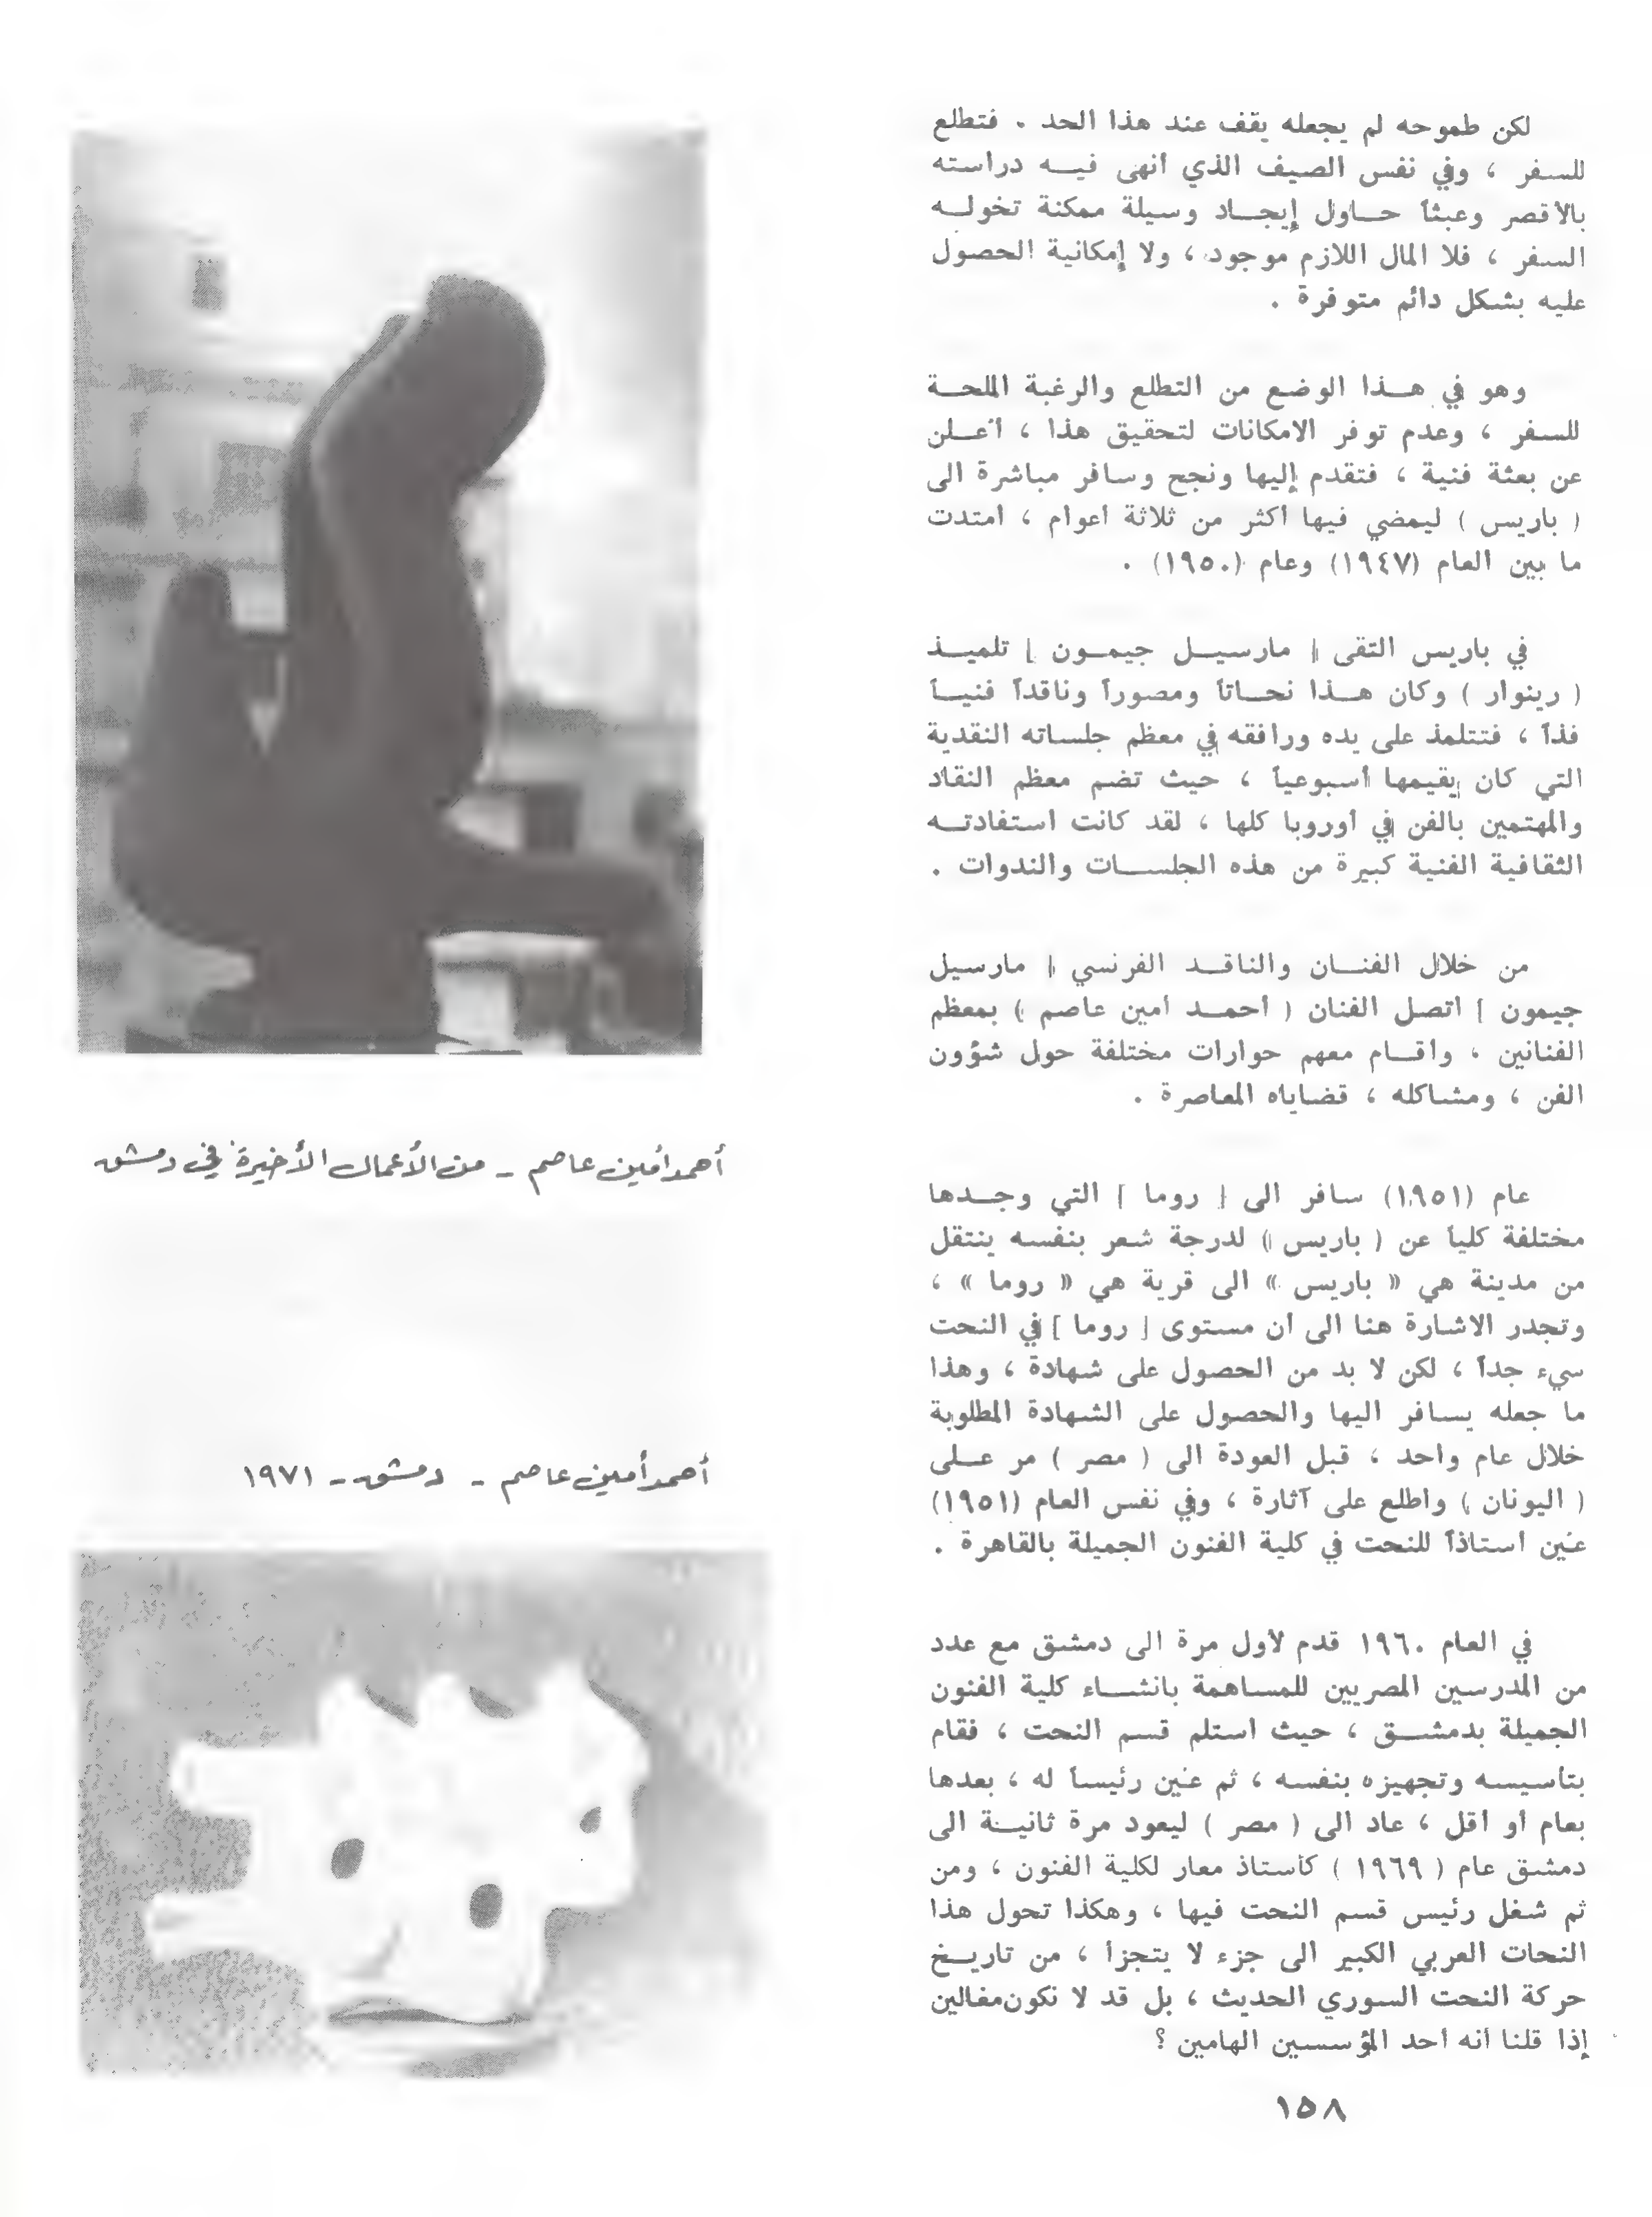 لكن طموحه لم يجعله يقف عند هذا الحد . فتطلع
للسفر ، وفي نفس الصيف الذي أنهى فيه دراسته
بالأقصر وعبثاً حاول إيجاد وسيلة ممكنة تخوله
السفر ، فلا المال اللازم موجود ، ولا إمكانية الحصول
عليه بشكل دائم متوفرة .
وهو في هذا الوضع من التطلع والرغبة الملحة
للسفر ، وعدم توفر الامكانات لتحقيق هذا ، أعلن
عن بعثة فنية ، فتقدم إليها ونجح وسافر مباشرة الى
( باريس ) ليمضي فيها أكثر من ثلاثة أعوام ، امتدت
ما بين العام (١٩٤٧) وعام (١٩٥٠) .
في باريس التقى [ مارسيل جيمون ] تلميذ
( رينوار ) وكان هذا نحاتاً ومصوراً وناقداً فنياً
فذاً ، فتتلمذ على يده ورافقه في معظم جلساته النقدية
التي كان يقيمها أسبوعياً ، حيث تضم معظم النقاد
والمهتمين بالفن في أوروبا كلها ، لقد كانت استفادته
الثقافية الفنية كبيرة من هذه الجلسات والندوات .
من خلال الفنان والناقد الفرنسي [ مارسيل
جيمون ] اتصل الفنان ( أحمد أمين عاصم ) بمعظم
الفنانين ، وأقام معهم حوارات مختلفة حول شؤون
الفن ، ومشاكله ، قضاياه المعاصرة .
عام (١٩٥١) سافر الى [ روما ] التي وجدها
مختلفة كلياً عن ( باريس ) لدرجة شعر بنفسه ينتقل
من مدينة هي « باريس » الى قرية هي « روما » ،
وتجدر الاشارة هنا الى أن مستوى [ روما ] في النحت
سيء جداً ، لكن لا بد من الحصول على شهادة ، وهذا
ما جعله يسافر اليها والحصول على الشهادة المطلوبة
خلال عام واحد ، قبل العودة الى ( مصر ) مر على
( اليونان ) واطلع على آثارة ، وفي نفس العام (١٩٥١)
عُين استاذاً للنحت في كلية الفنون الجميلة بالقاهرة .
في العام ١٩٦٠ قدم لأول مرة الى دمشق مع عدد
من المدرسين المصريين للمساهمة بانشاء كلية الفنون
الجميلة بدمشق ، حيث استلم قسم النحت ، فقام
بتأسيسه وتجهيزه بنفسه ، ثم عُين رئيساً له ، بعدها
بعام أو أقل ، عاد الى ( مصر ) ليعود مرة ثانية الى
دمشق عام ( ١٩٦٩ ) كأستاذ معار لكلية الفنون ، ومن
ثم شغل رئيس قسم النحت فيها ، وهكذا تحول هذا
النحات العربي الكبير الى جزء لا يتجزأ ، من تاريخ
حركة النحت السوري الحديث ، بل قد لا نكون مغالين
إذا قلنا أنه أحد المؤسسين الهامين ؟
١٥٨
أحمد أمين عاصم - من الأعمال الأخيرة في دمشق
أحمد أمين عاصم - دمشق - ١٩٧١